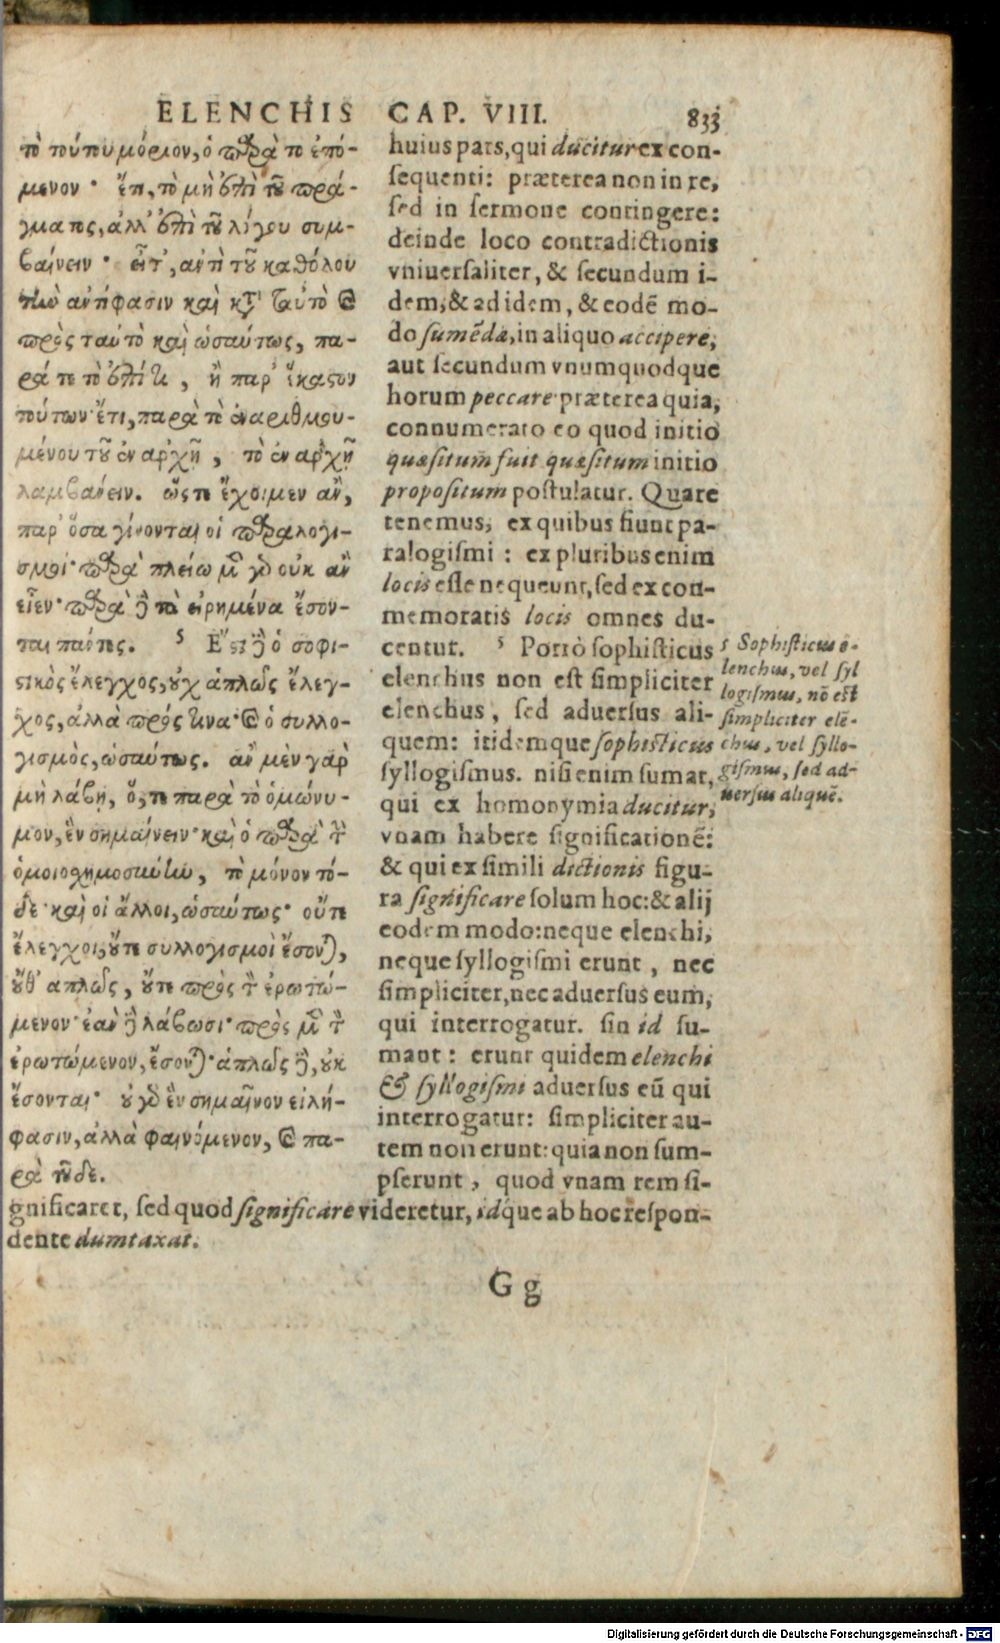 ELENCHIS CAP. VIII. 833
τὸ τούτου μόριον, ὁ παρὰ τὸ ἑπό-
μενον· ἔτι, τὸ μὴ ἐπὶ τοῦ πρά-
γματος, ἀλλ' ἐπὶ τοῦ λόγου συμ-
βαίνειν· εἶτ', ἀντὶ τοῦ καθόλου
τὴν ἀντίφασιν καὶ κτ' ταὐτὸ καὶ
πρὸς ταὐτὸ καὶ ὡσαύτως, πα-
ρά τε τὸ ἐπί τι, ἢ παρ' ἕκαστον
τούτων· ἔτι, παρὰ τὸ ἐναριθμου-
μένου τοῦ ἐν ἀρχῇ, τὸ ἐν ἀρχῇ
λαμβάνειν. ὥστε ἔχοιμεν ἂν,
παρ' ὅσα γίνονται οἱ παραλογι-
σμοί· παρὰ πλείω μὲν γὰρ οὐκ ἂν
εἶεν· παρὰ δὲ τὰ εἰρημένα ἔσον-
ται πάντες. 5 Ἔστι δὲ ὁ σοφι-
στικὸς ἔλεγχος, οὐχ ἁπλῶς ἔλεγ-
χος, ἀλλὰ πρός τινα· καὶ ὁ συλλο-
γισμὸς, ὡσαύτως. ἂν μὲν γὰρ
μὴ λάβῃ, ὅ, τε παρὰ τὸ ὁμώνυ-
μον, ἓν σημαίνειν· καὶ ὁ παρὰ τὴν
ὁμοιοσχημοσύνην, τὸ μόνον τό-
δε· καὶ οἱ ἄλλοι, ὡσαύτως· οὔτε
ἔλεγχοι, οὔτε συλλογισμοὶ ἔσονται,
οὔθ' ἁπλῶς, οὔτε πρὸς τὸν ἐρωτώ-
μενον· ἐὰν δὲ λάβωσι· πρὸς μὲν τὸν
ἐρωτώμενον, ἔσονται· ἁπλῶς δὲ, οὐκ
ἔσονται· οὐ γὰρ ἓν σημαῖνον εἰλή-
φασιν, ἀλλὰ φαινόμενον, καὶ πα-
ρὰ τοῦδε.
huius pars, qui ducitur ex con-
sequenti: præterea non in re,
sed in sermone contingere:
deinde loco contradictionis
vniuersaliter, & secundum i-
dem, & ad idem, & eodē mo-
do sumēdæ, in aliquo accipere,
aut secundum vnumquodque
horum peccare· præterea quia,
connumerato eo quod initio
quæsitum fuit quæsitum initio
propositum postulatur. Quare
tenemus, ex quibus fiunt pa-
ralogismi : ex pluribus enim
locis esse nequeunt, sed ex con-
memoratis locis omnes du-
centur. 5 Porrò sophisticus
elenchus non est simpliciter
elenchus, sed aduersus ali-
quem: itidemque sophisticus
syllogismus. nisi enim sumat,
qui ex homonymia ducitur,
vnam habere significationē:
& qui ex simili dictionis figu-
ra significare solum hoc: & alij
eodem modo: neque elenchi,
neque syllogismi erunt, nec
simpliciter, nec aduersus eum,
qui interrogatur. sin id su-
mant : erunt quidem elenchi
& syllogismi aduersus eū qui
interrogatur: simpliciter au-
tem non erunt: quia non sum-
pserunt, quod vnam rem si-
gnificaret, sed quod significare videretur, idque ab hoc respon-
dente dumtaxat.
5 Sophisticus e-
lenchus, vel syl
logismus, nō est
simpliciter elē-
chus, vel syllo-
gismus, sed ad-
uersus aliquē.
G g
Digitalisierung gefördert durch die Deutsche Forschungsgemeinschaft - DFG